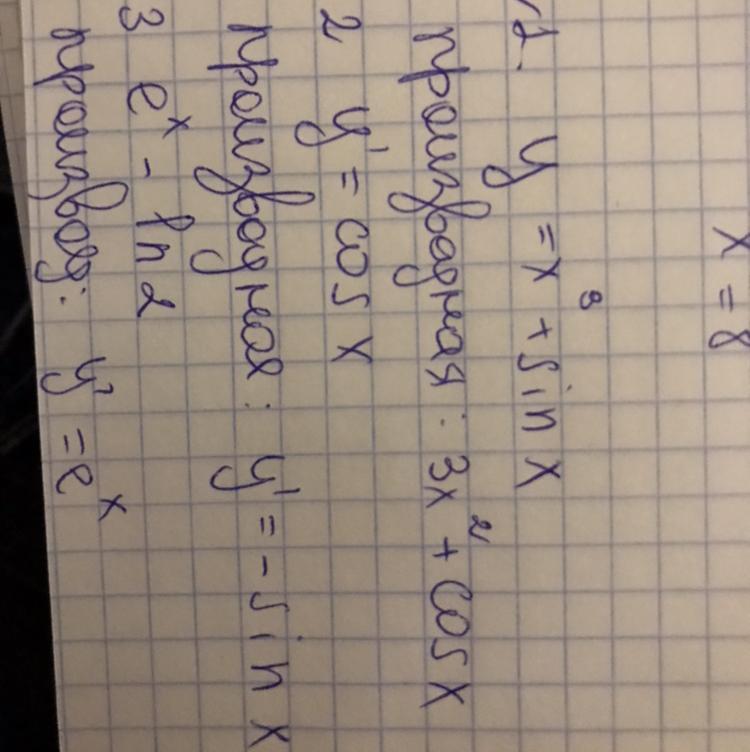 x = 8
1. y = x³ + sin x
производная: 3x² + cos x
2 y' = cos x
производная: y' = - sin x
3 eˣ - ln 2
производ: y' = eˣ